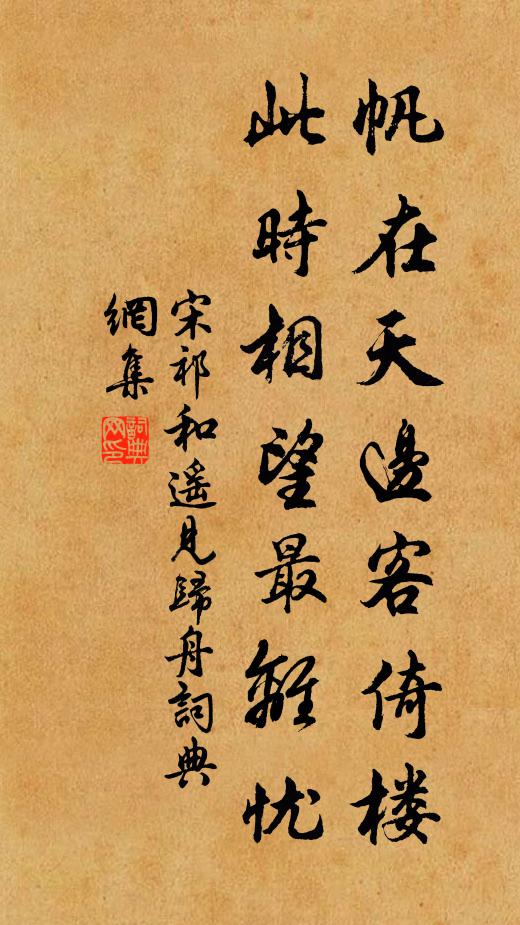 帆在天邊客倚楼
此時相望最離忧
宋祁和遥見歸舟詞典
網集
詞典網印